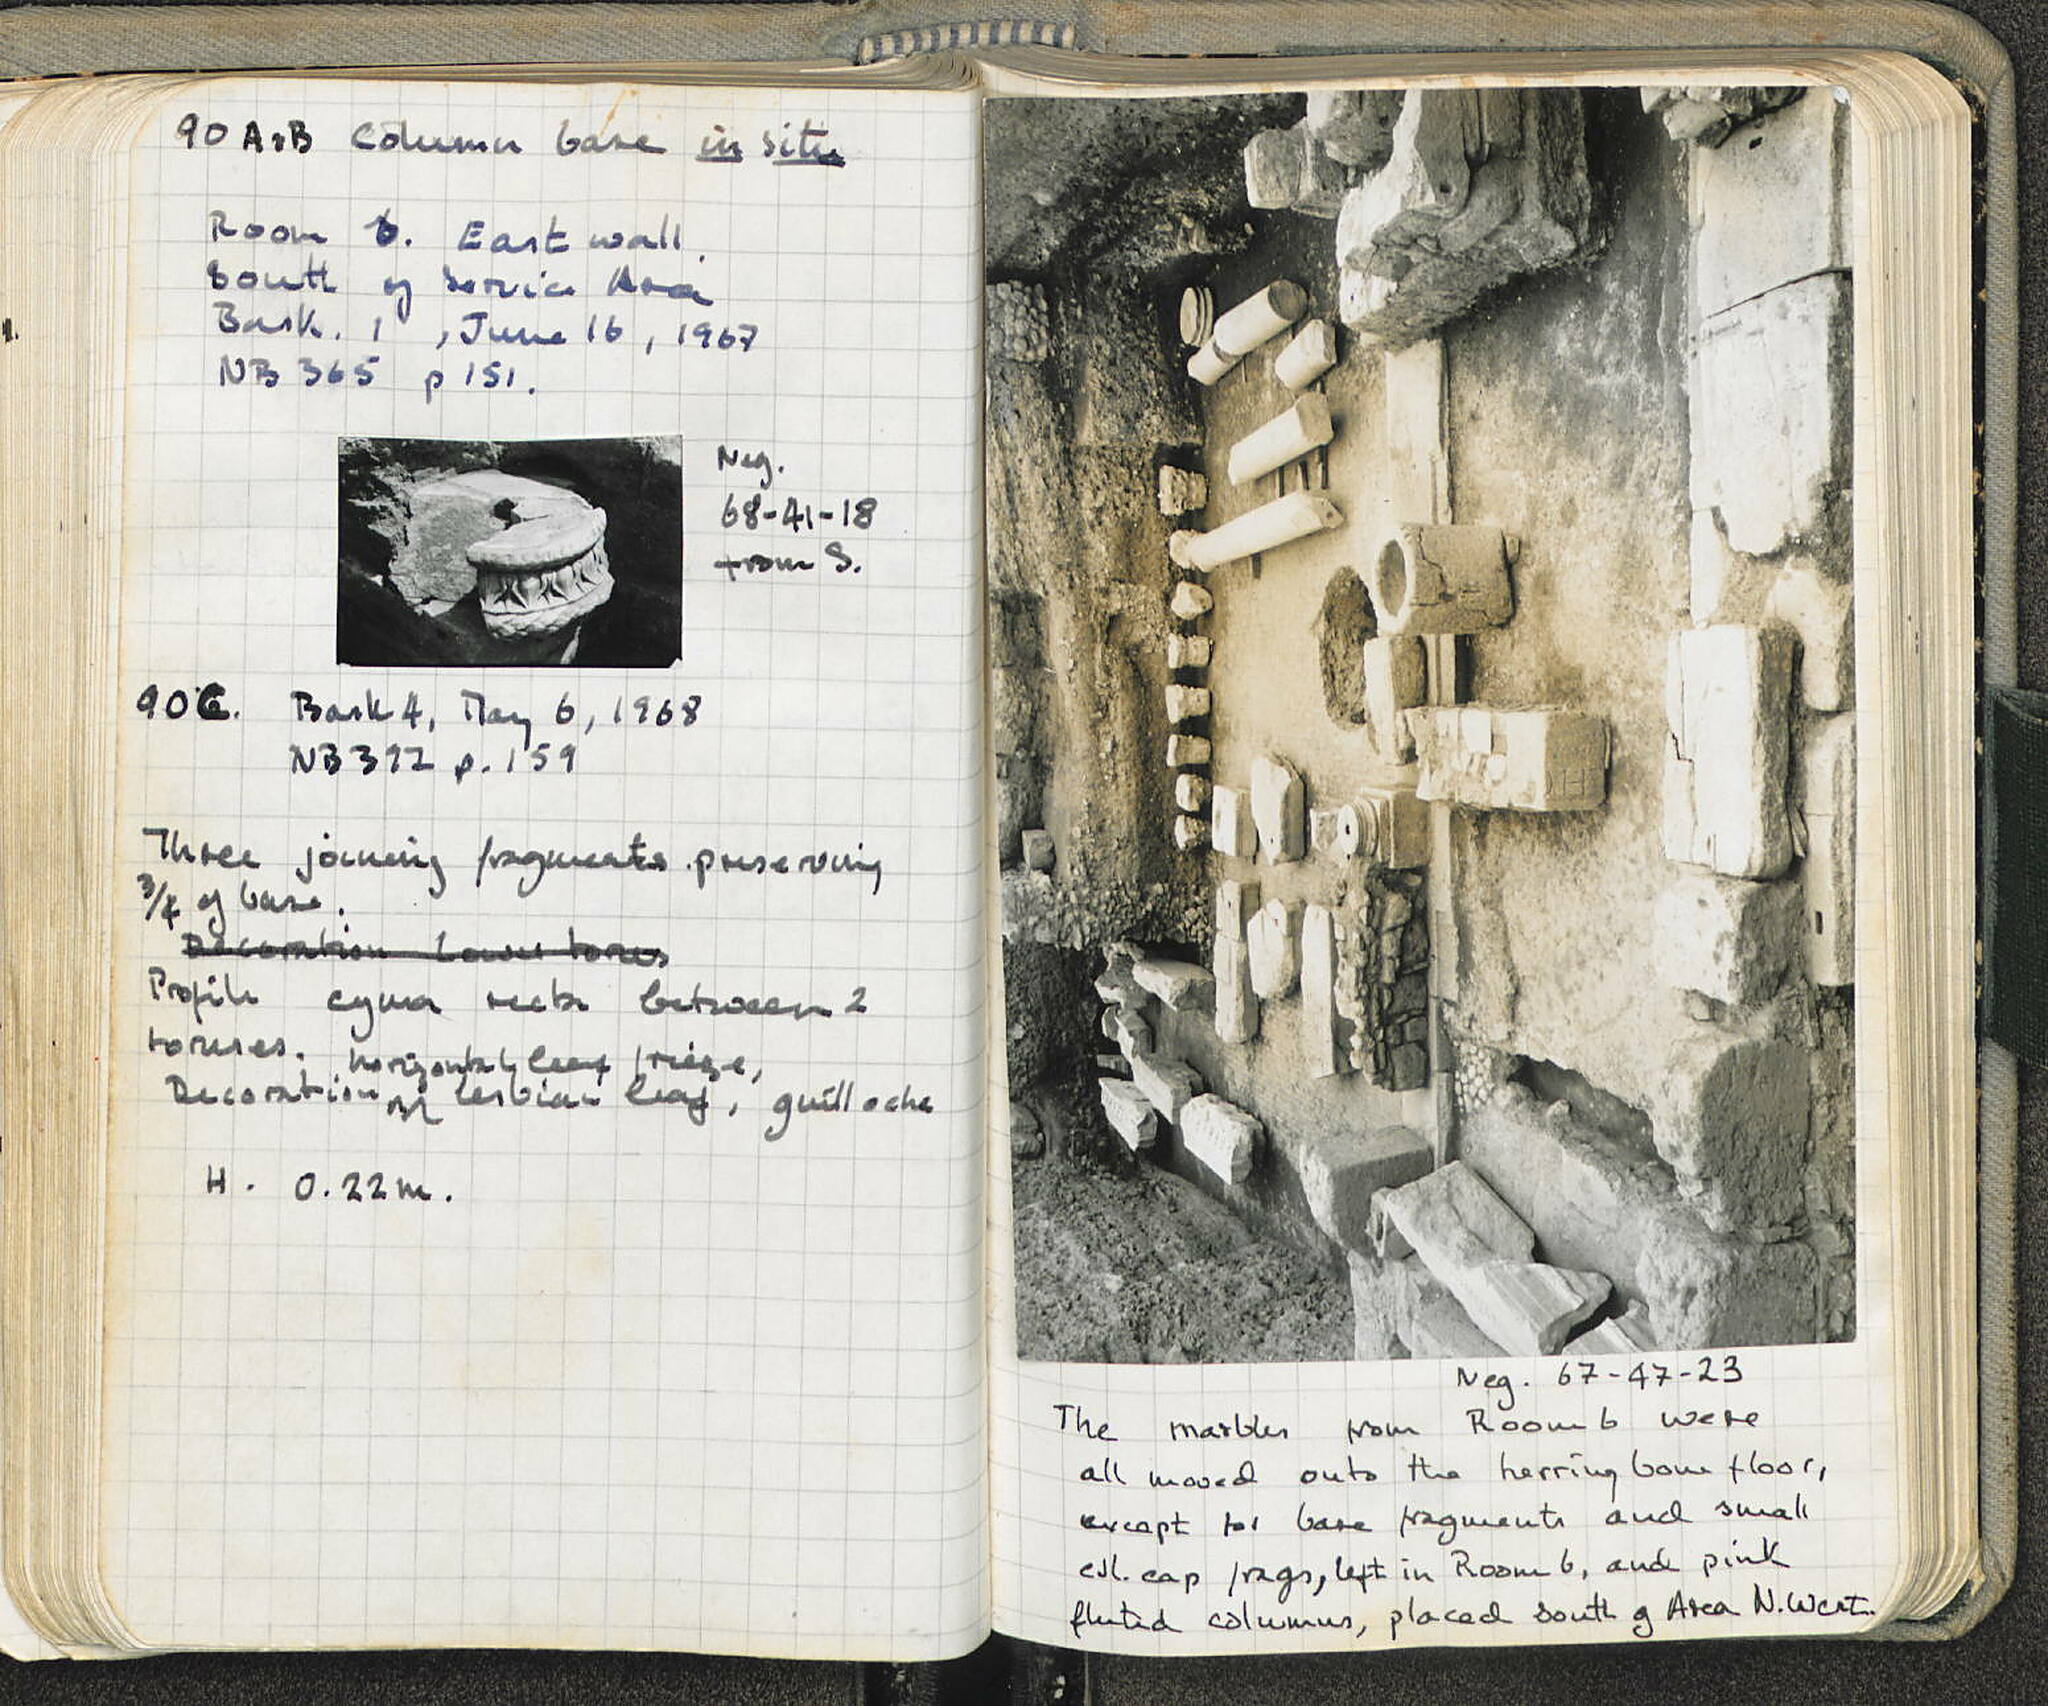 90 A+B Column base in situ
Room 6. East wall.
South of Service Area
Bask. 1 , June 16, 1967
NB 365 p 151.
Neg.
68-41-18
from S.
90C. Bask 4, May 6, 1968
NB 392 p. 159
Three joining fragments preserving
3/4 of base.
Decoration Lower torus
Profile cyma recta between 2
toruses.
horizontal leaf frieze,
Decoration of lesbian leaf, guilloche
H. 0.22 m.
Neg. 67-47-23
The marbles from Room 6 were
all moved onto the herring bone floor,
except for base fragments and small
col. cap frags, left in Room 6, and pink
fluted columns, placed South of Area N. West.